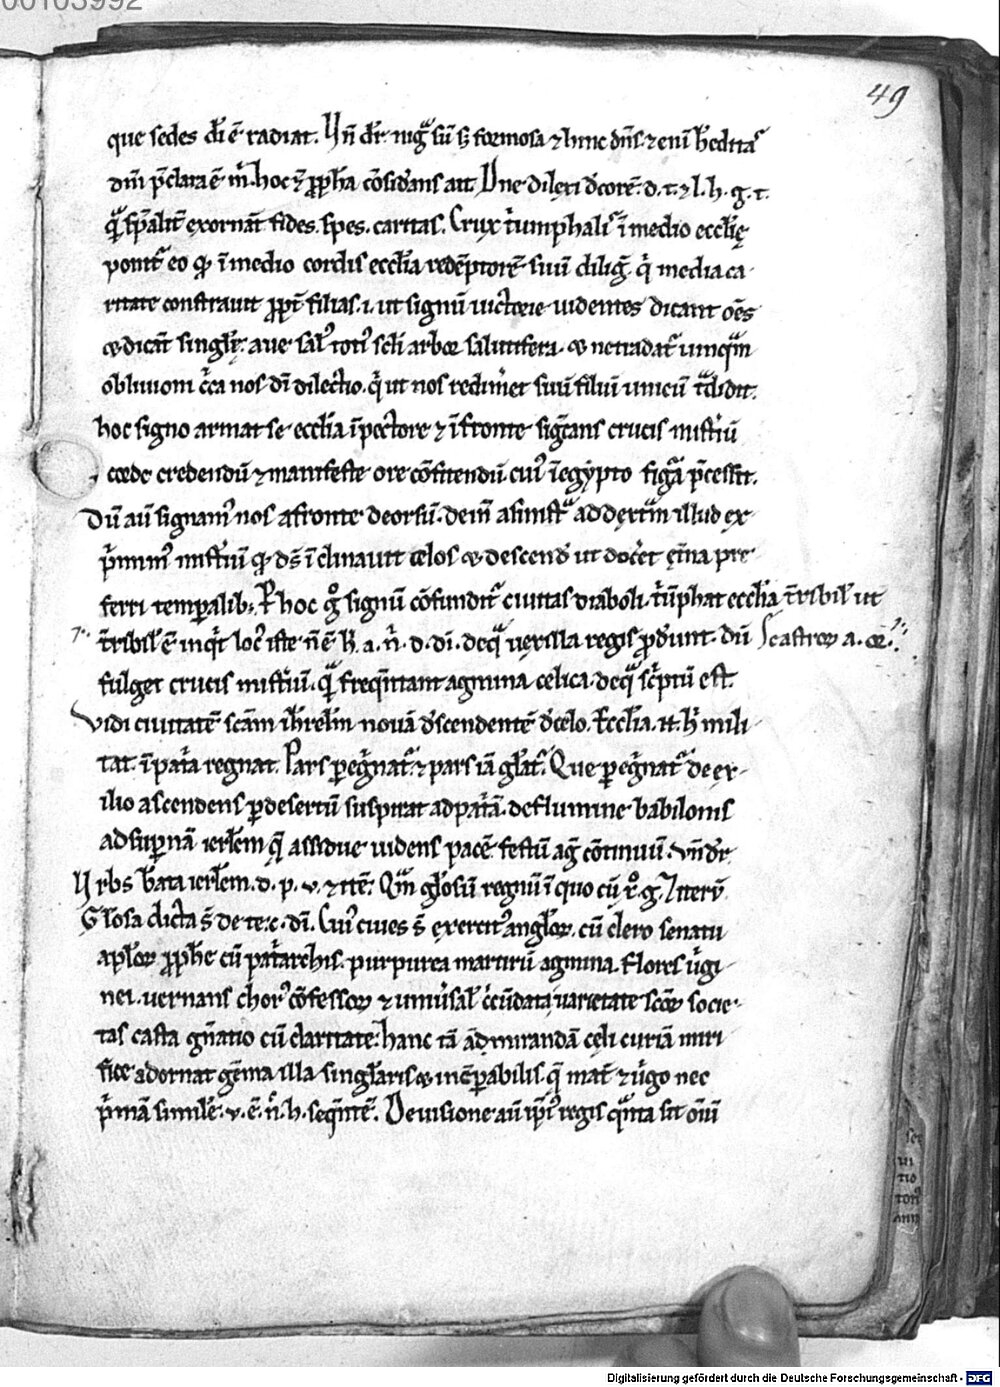 00103992
49
que sedes dī ē radiat. Vn̄ dr̄ nigͣ sū s; formosa ⁊ hinc dn̄s. ⁊ enī h̄edita᷒
dn̄i p̄clara ē m̄. hoc ⁊ ꝓph̄a cōsid̾ans ait. Dn̄e dilexi decorē. d. t. ⁊ l. h. g. t.
qͣ̄ sp̄alit̄ exornāt fides. spes. caritas. Crux tͥumphalis ī medio eccl̄ię
ponit᷑ eo qꝫ ī medio cordis eccl̄ia redēptorē suū diliḡ. qͥ media ca
ritate constrauit ꝓpt̄ filias .i. ut signū uictorie uidentes dicant oēs
⁊ dicāt singl̄i: aue sal᷒ toti᷒ scl̄i arbor salutifera. ⁊ ne tradat᷑ umqͣm
obliuioni c̄ca nos dī dilectio. qͥ ut nos redim̄et suū filiū unicū tͣdidit.
hoc signo armat se eccl̄ia ī pectore ⁊ ī fronte siḡcans crucis mist̾iū
corde credendū ⁊ manifeste ore cōfitendū cui᷒ ī egypto figͣ̄ p̄cessit.
Dū aū signam᷒ nos a fronte deorsū. dein̄ a sinistͣ ad dext̾m illud ex
p̄mim᷒ mist̾iū qꝫ ds̄ ī clinauit celos ⁊ descend̾ ut doc̄et et̾na pre
ferri temporalib; P̄ hoc gͦ signū cōfundit᷑ ciuitas diaboli. tͥūphat eccl̄ia t̄ribil᷒ ut
t̄ribil᷒ ē inqͥt loc᷒ iste n̄ ē h̄. a. n̄. d. dī. de qͣ uexilla regis ꝓd̾unt. dū castroꝝ a. or.
fulget crucis mist̾iū. qͣ̄ freqn̄tant agmina celica. de qͣ sc̄ptū est.
Vidi ciuitatē scām ih̄rlēm nouā d̾scendentē d̾ celo. Eccl̄ia .n. h̄ mili
tat. ī pat̾a regnat. Pars pegͥnat᷑. ⁊ pars iā gl̄at᷑. Que pegͥnat᷑ de ex
ilio ascendens p desertū suspirat ad pat̾ā. de flumine babilonis
ad supnā ierl̄em qͣ̄ assidue uidens pacē festū aḡ cōtinuū. vn̄ dr̄
Vrbs b̄ata ierl̄em. d. p. v. ⁊ itē: Qͣm gl̄osū regnū ī quo cū x̄. g. Iterū
Gl̄osa dicta s̄ de te. c. dī. Cui᷒ ciues s̄ exercit᷒ angl̄oꝝ. cū clero senatu
apl̄oꝝ ꝓph̄e cū pat̾archis. purpurea martirū agmina. flores uͥgi
nei. uernans chor᷒ cōfessoꝝ ⁊ uniu̾sal᷒ cͥcūdata uarietate scōꝝ socie
tas casta gn̄atio cū claritate: hanc tā admirandā celi curiā miri
fice adornat gēma illa singl̄aris ⁊ incōpabilis. qͣ̄ mat̾ ⁊ uͥgo nec
p̄mā similē. v. ē. n̄. h. seqn̄tē. De uisione aū ip̄i᷒ regis qͣnta sit om̄i
Digitalisierung gefördert durch die Deutsche Forschungsgemeinschaft - DFG